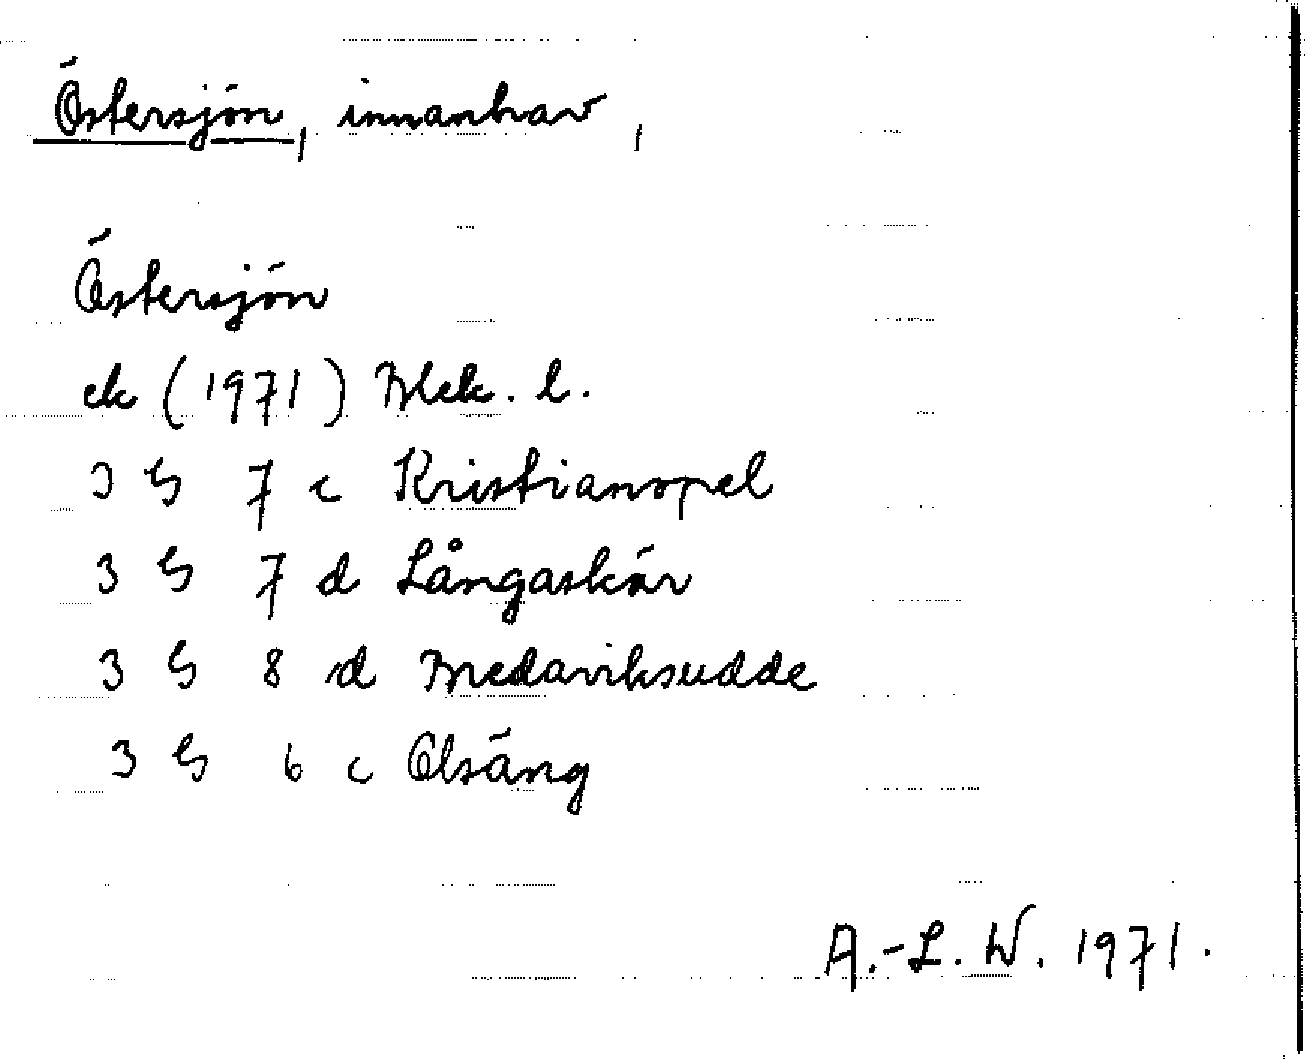 Östersjön, innanhav,
Östersjön
ek (1971) Blek. l.
3 G 7 c Kristianopel
3 G 7 d Långaskär
3 G 8 d Bredaviksudde
3 G 6 c Olsäng
A.-L. W. 1971.